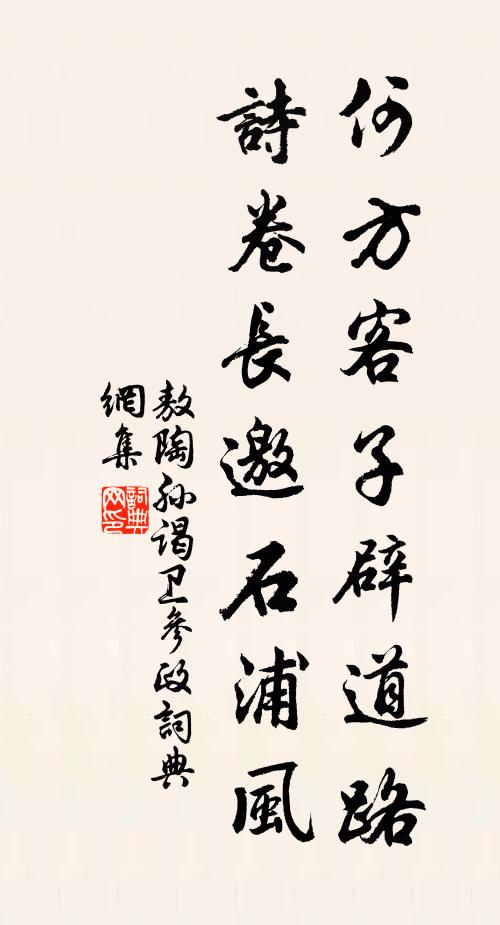 何方客子辟道路
詩卷長邀石浦風
敖陶孙謁卫參政詞典
網集
詞典
网印